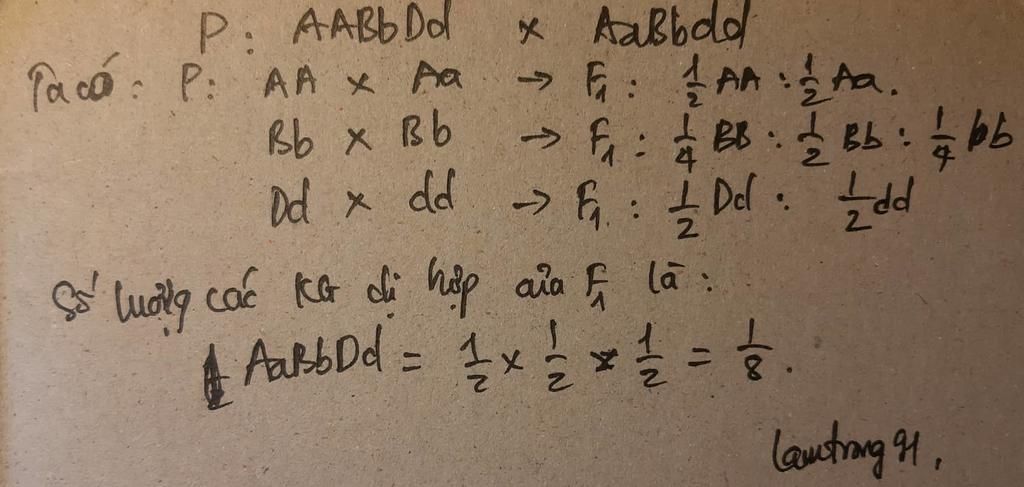 P: AABbDd x AaBbdd
Ta có: P: AA x Aa → F₁: 1/2 AA : 1/2 Aa.
Bb x Bb → F₁: 1/4 BB : 1/2 Bb : 1/4 bb
Dd x dd → F₁: 1/2 Dd : 1/2 dd
Số lượng các KG dị hợp của F₁ là:
AaBbDd = 1/2 x 1/2 x 1/2 = 1/8.